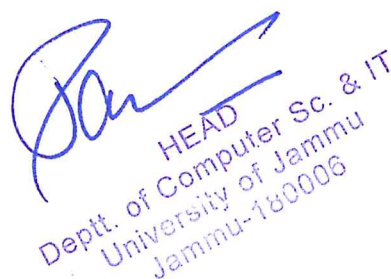 HEAD
Deptt. of Computer Sc. & IT
University of Jammu
Jammu-180006